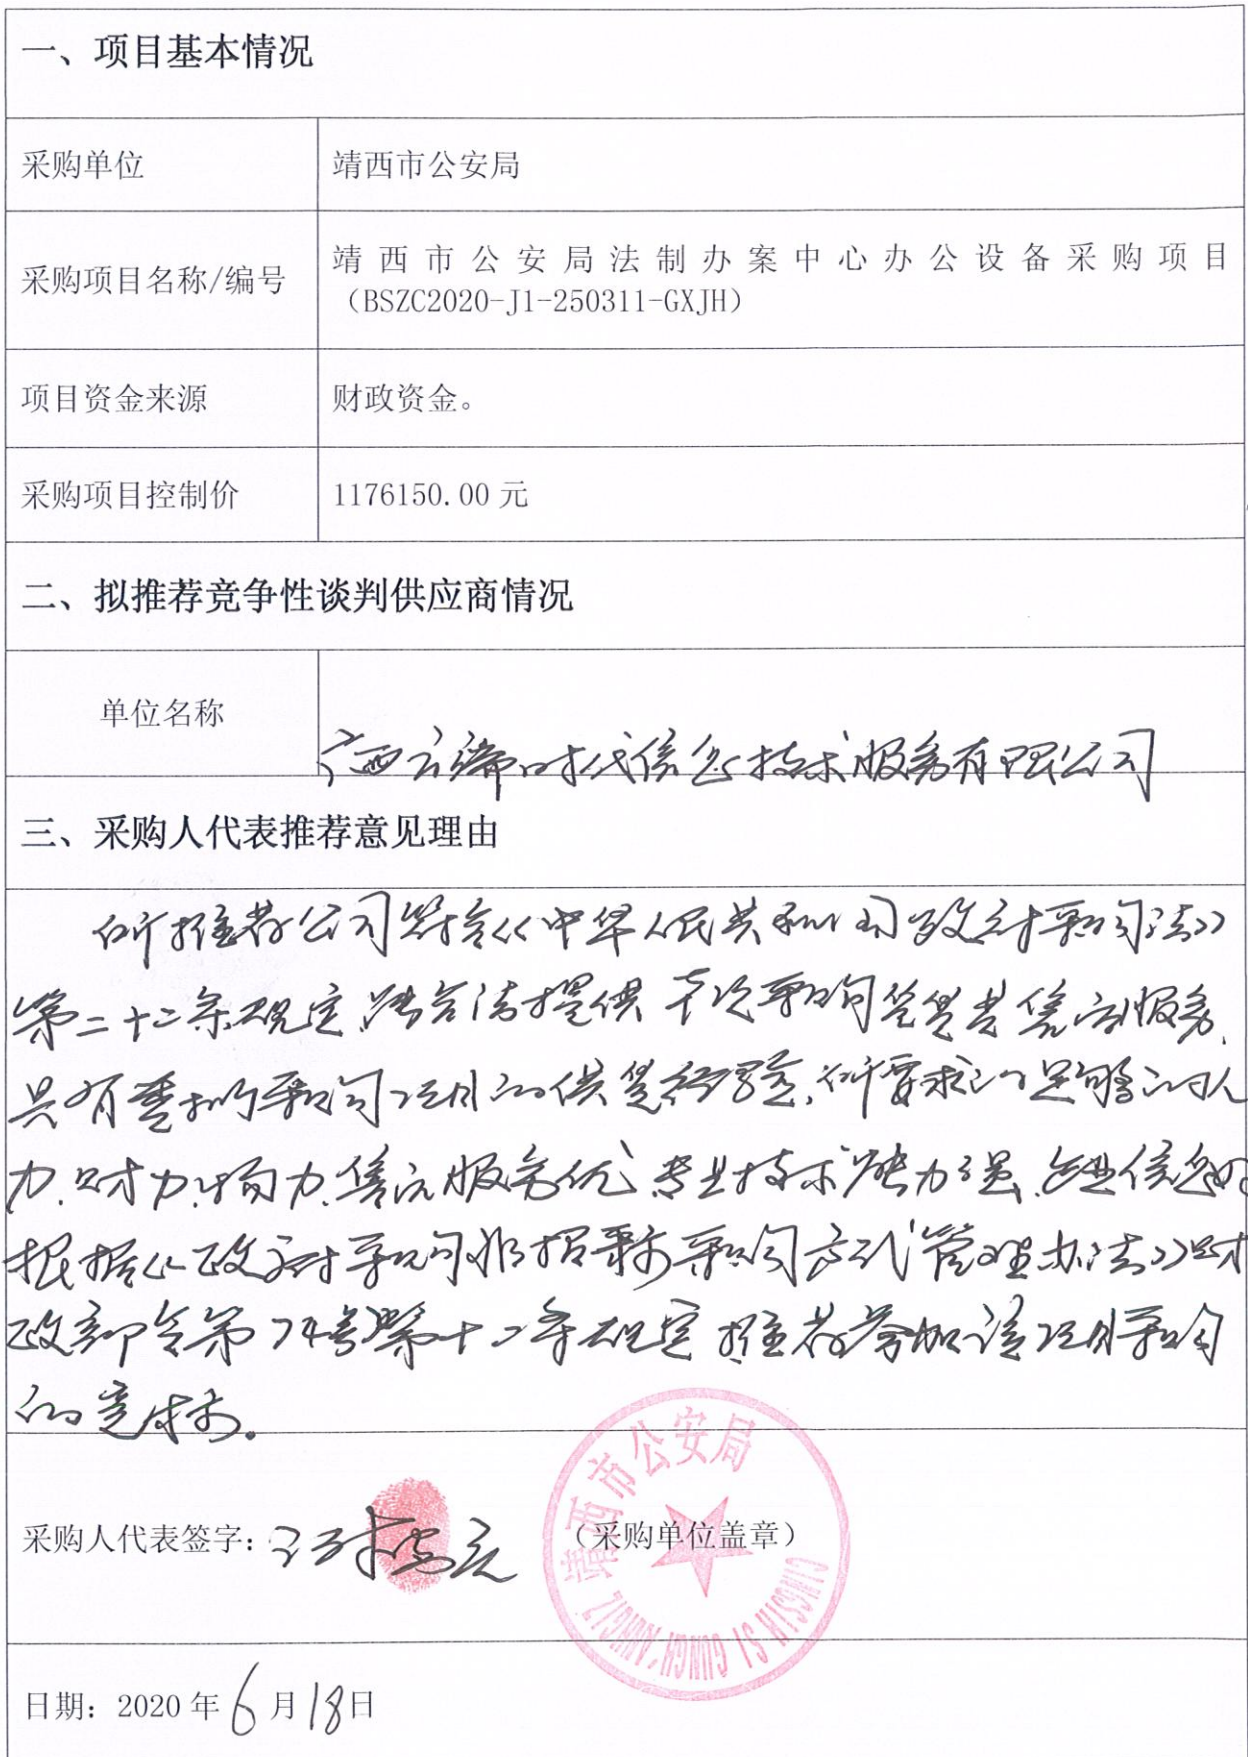 一、项目基本情况
采购单位
靖西市公安局
采购项目名称/编号
靖西市公安局法制办案中心办公设备采购项目
（BSZC2020-J1-250311-GXJH）
项目资金来源
财政资金。
采购项目控制价
1176150.00 元
二、拟推荐竞争性谈判供应商情况
单位名称
广西云端时代信息技术服务有限公司
三、采购人代表推荐意见理由
所推荐公司符合《中华人民共和国政府采购法》
第二十二条规定,能合法提供本次采购货售后服务,
具有类似采购项目的供货经验,所要求的足够的人
力.财力.物力.售后服务优,专业技术能力强,企业信息好
根据《政府采购非招标采购方式管理办法》财
政部令第74号第十二条规定 推荐参加该项目采购
的竞标。
采购人代表签字：
（采购单位盖章）
靖西市公安局
CINGSIH SI GUNGH'ANHGIZ
日期：2020 年 6 月 18日